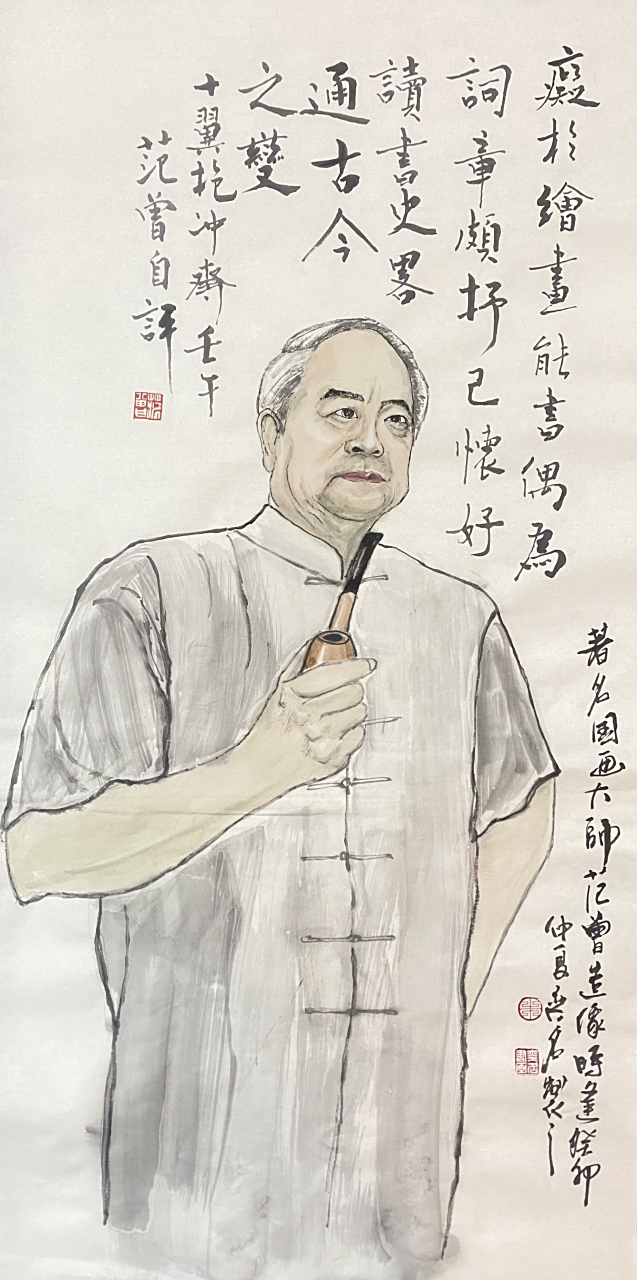 癡於繪畫能書偶爲
詞章頗抒己懷好
讀書史畧
通古今
之變
十翼抱冲齋壬午
范曾自評
范曾
著名國画大師范曾造像時逢癸卯
仲夏名製